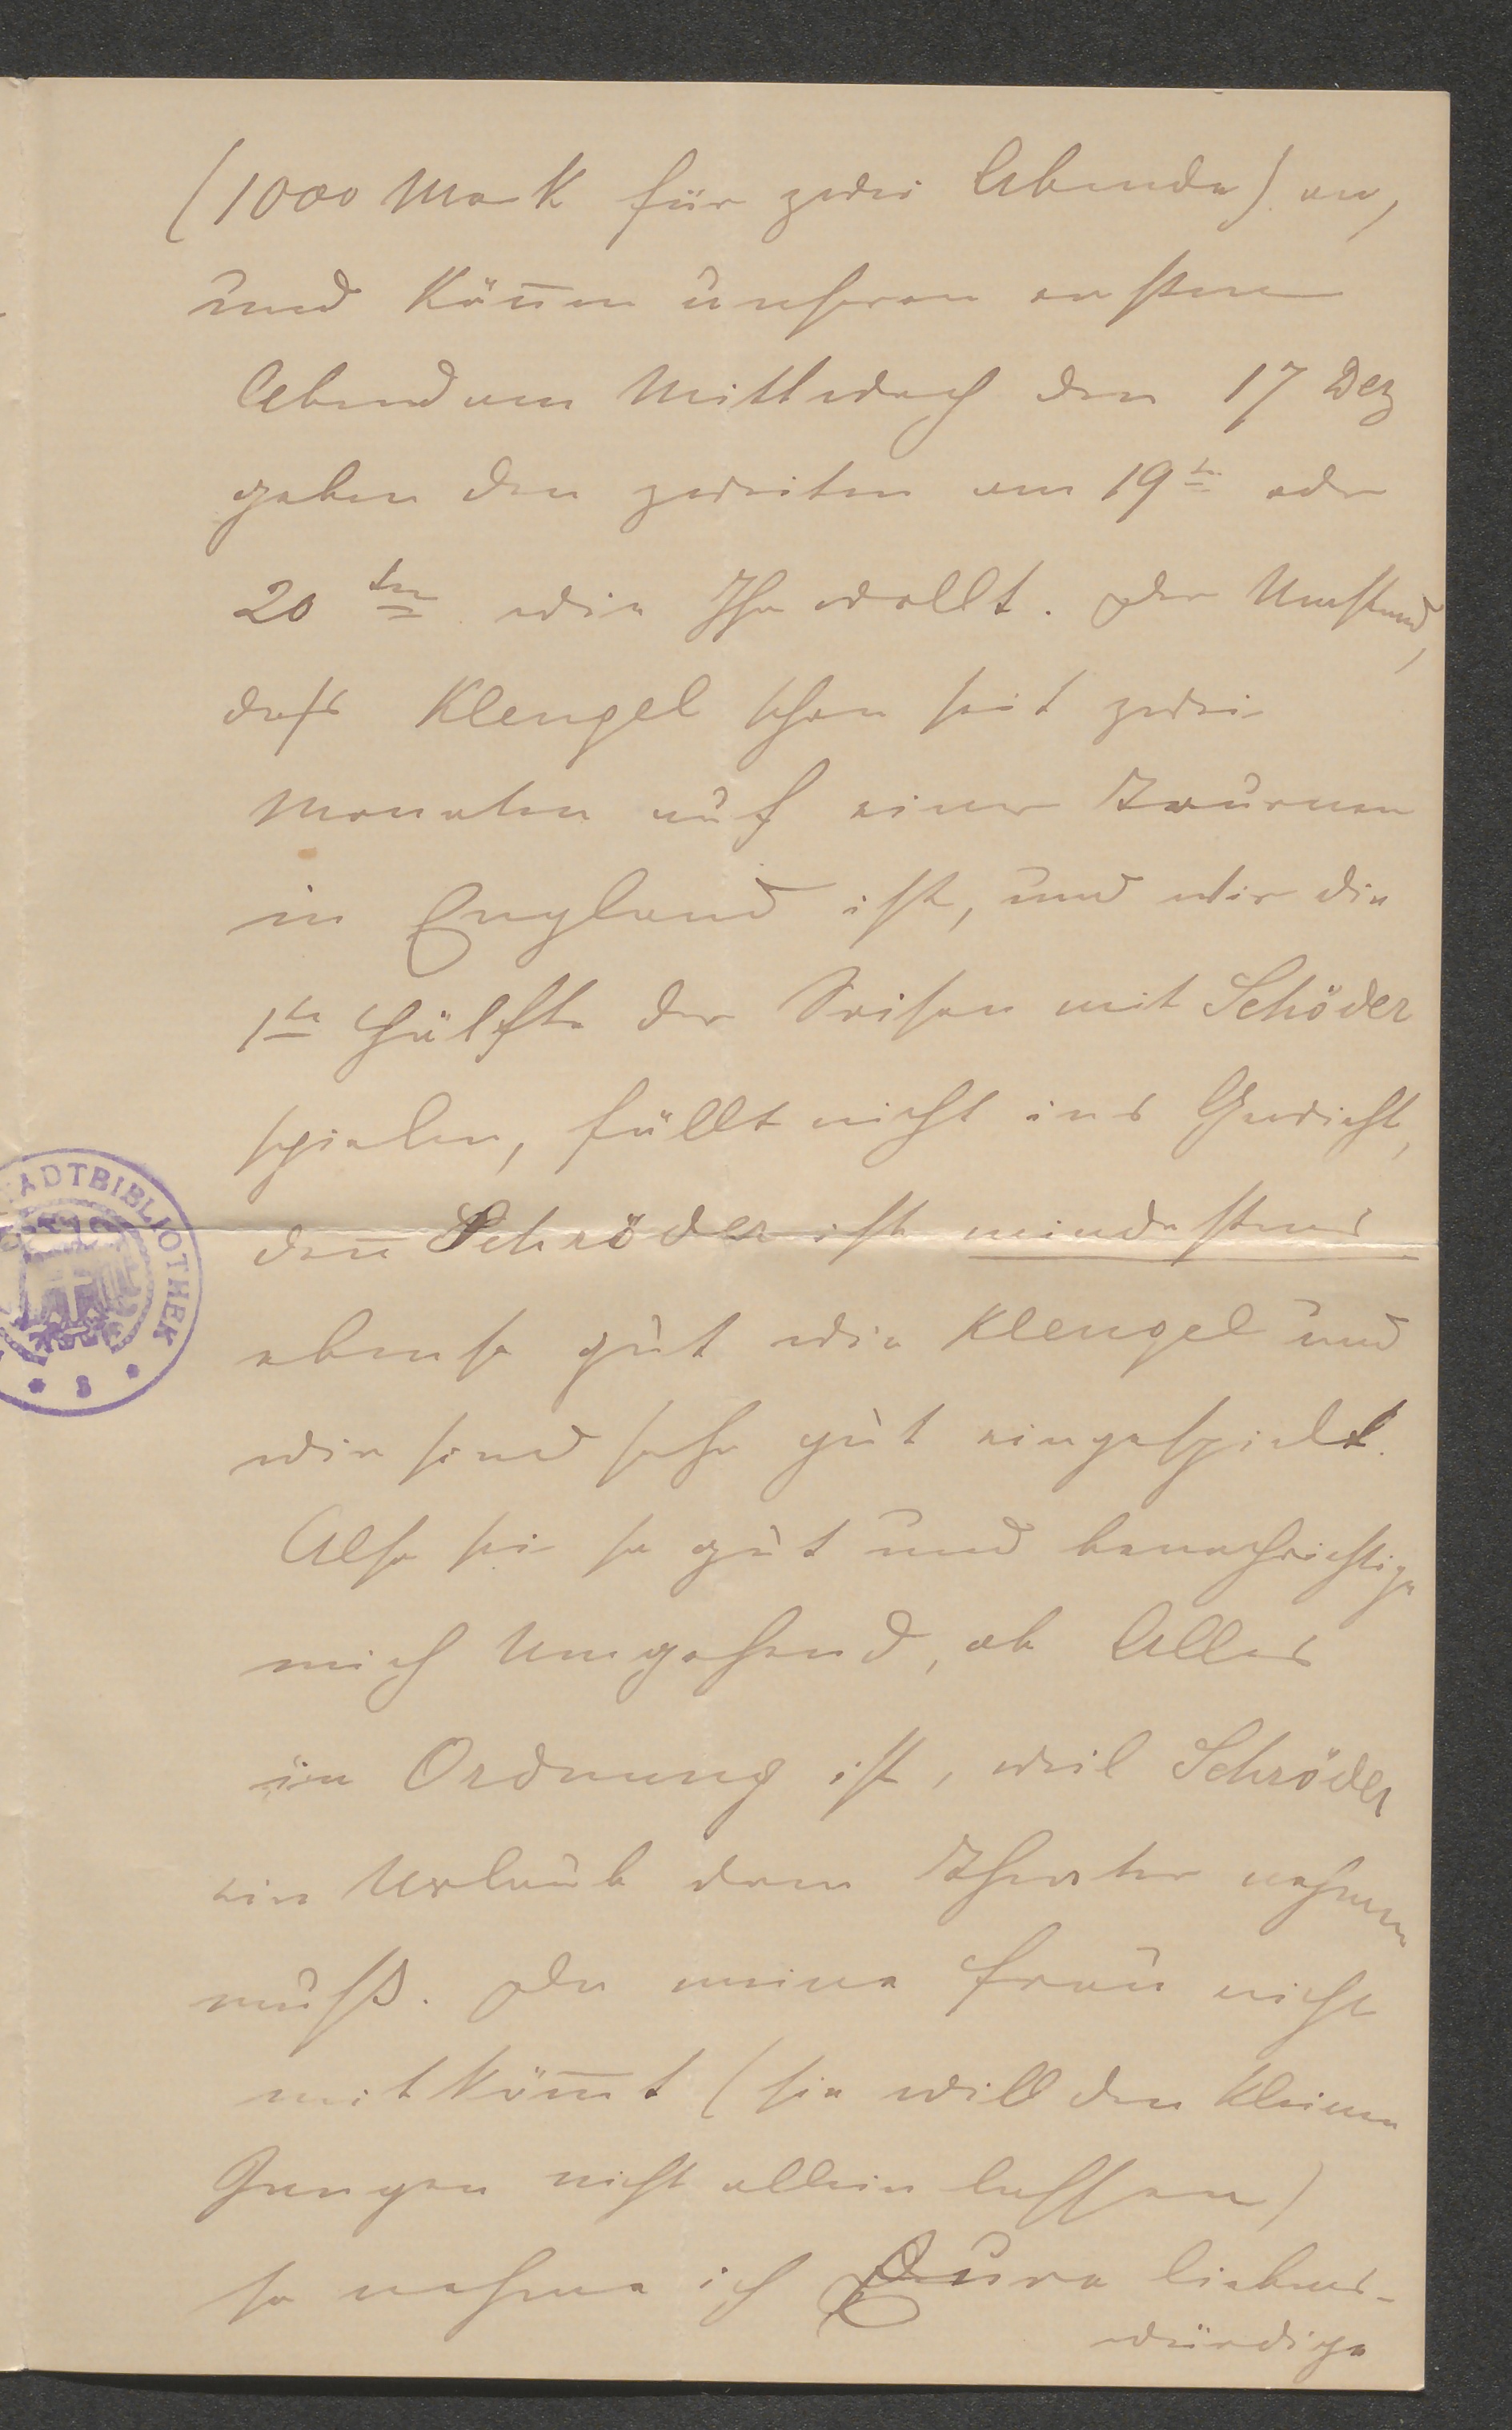 (1000 Mark für zwei Abende) an,
und kön̄en unseren ersten
Abend am Mittwoch den 17 Dez
geben den zweiten am 19ten oder
20ten wie Ihr wollt. Der Umstand,
dass Klengel schon seit zwei
Monaten auf einer Tournee
in England ist, und wir die
1te Hälfte der Saison mit Schöder
spielen, fällt nicht ins Gewicht,
den̄ Schröder ist mindestens
ebenso gut wie Klengel und
wir sind sehr gut eingespielt.
Also sei so gut und benachrichtige
mich umgehend, ob Alles
in Ordnung ist, weil Schröder
ein Urlaub dem Theater nehmen
muß. Da meine Frau nicht
mitköm̄t (sie will den kleinen
Jungen nicht allein lassen)
so nehme ich Eure liebens-
würdige
STADTBIBLIOTHEK
* 8 *